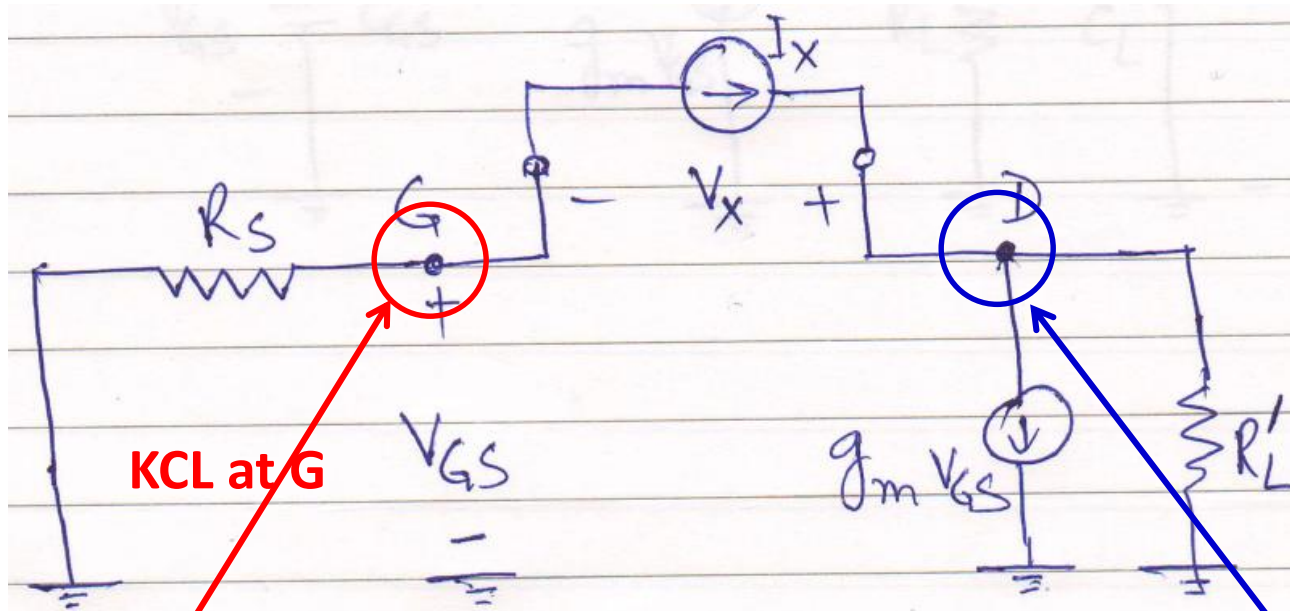 I_X
G
− V_X +
D
R_S
+
KCL at G
V_GS
−
g_m V_GS
R_L'